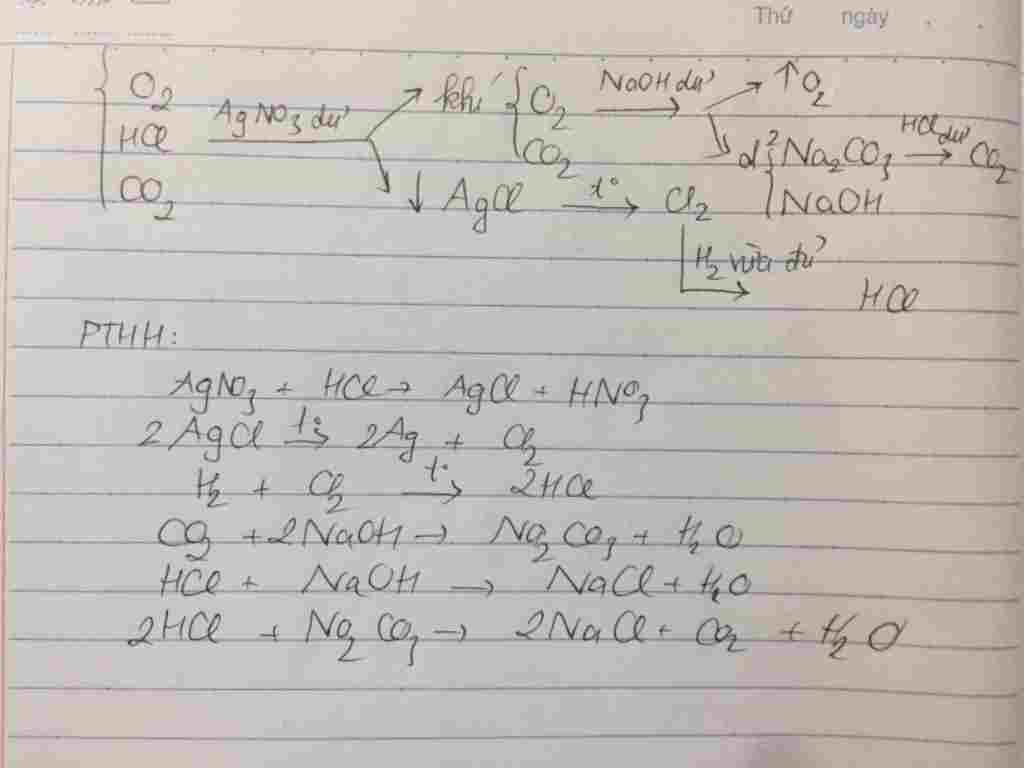 Thứ ngày . .
O₂
HCl
CO₂
AgNO₃ dư
khí { O₂
CO₂
NaOH dư
↑O₂
d² { Na₂CO₃
NaOH
HCl dư
CO₂
↓ AgCl t° → Cl₂
H₂ vừa đủ
HCl
PTHH:
AgNO₃ + HCl → AgCl + HNO₃
2AgCl t° → 2Ag + Cl₂
H₂ + Cl₂ t° → 2HCl
CO₂ + 2NaOH → Na₂CO₃ + H₂O
HCl + NaOH → NaCl + H₂O
2HCl + Na₂CO₃ → 2NaCl + CO₂ + H₂O